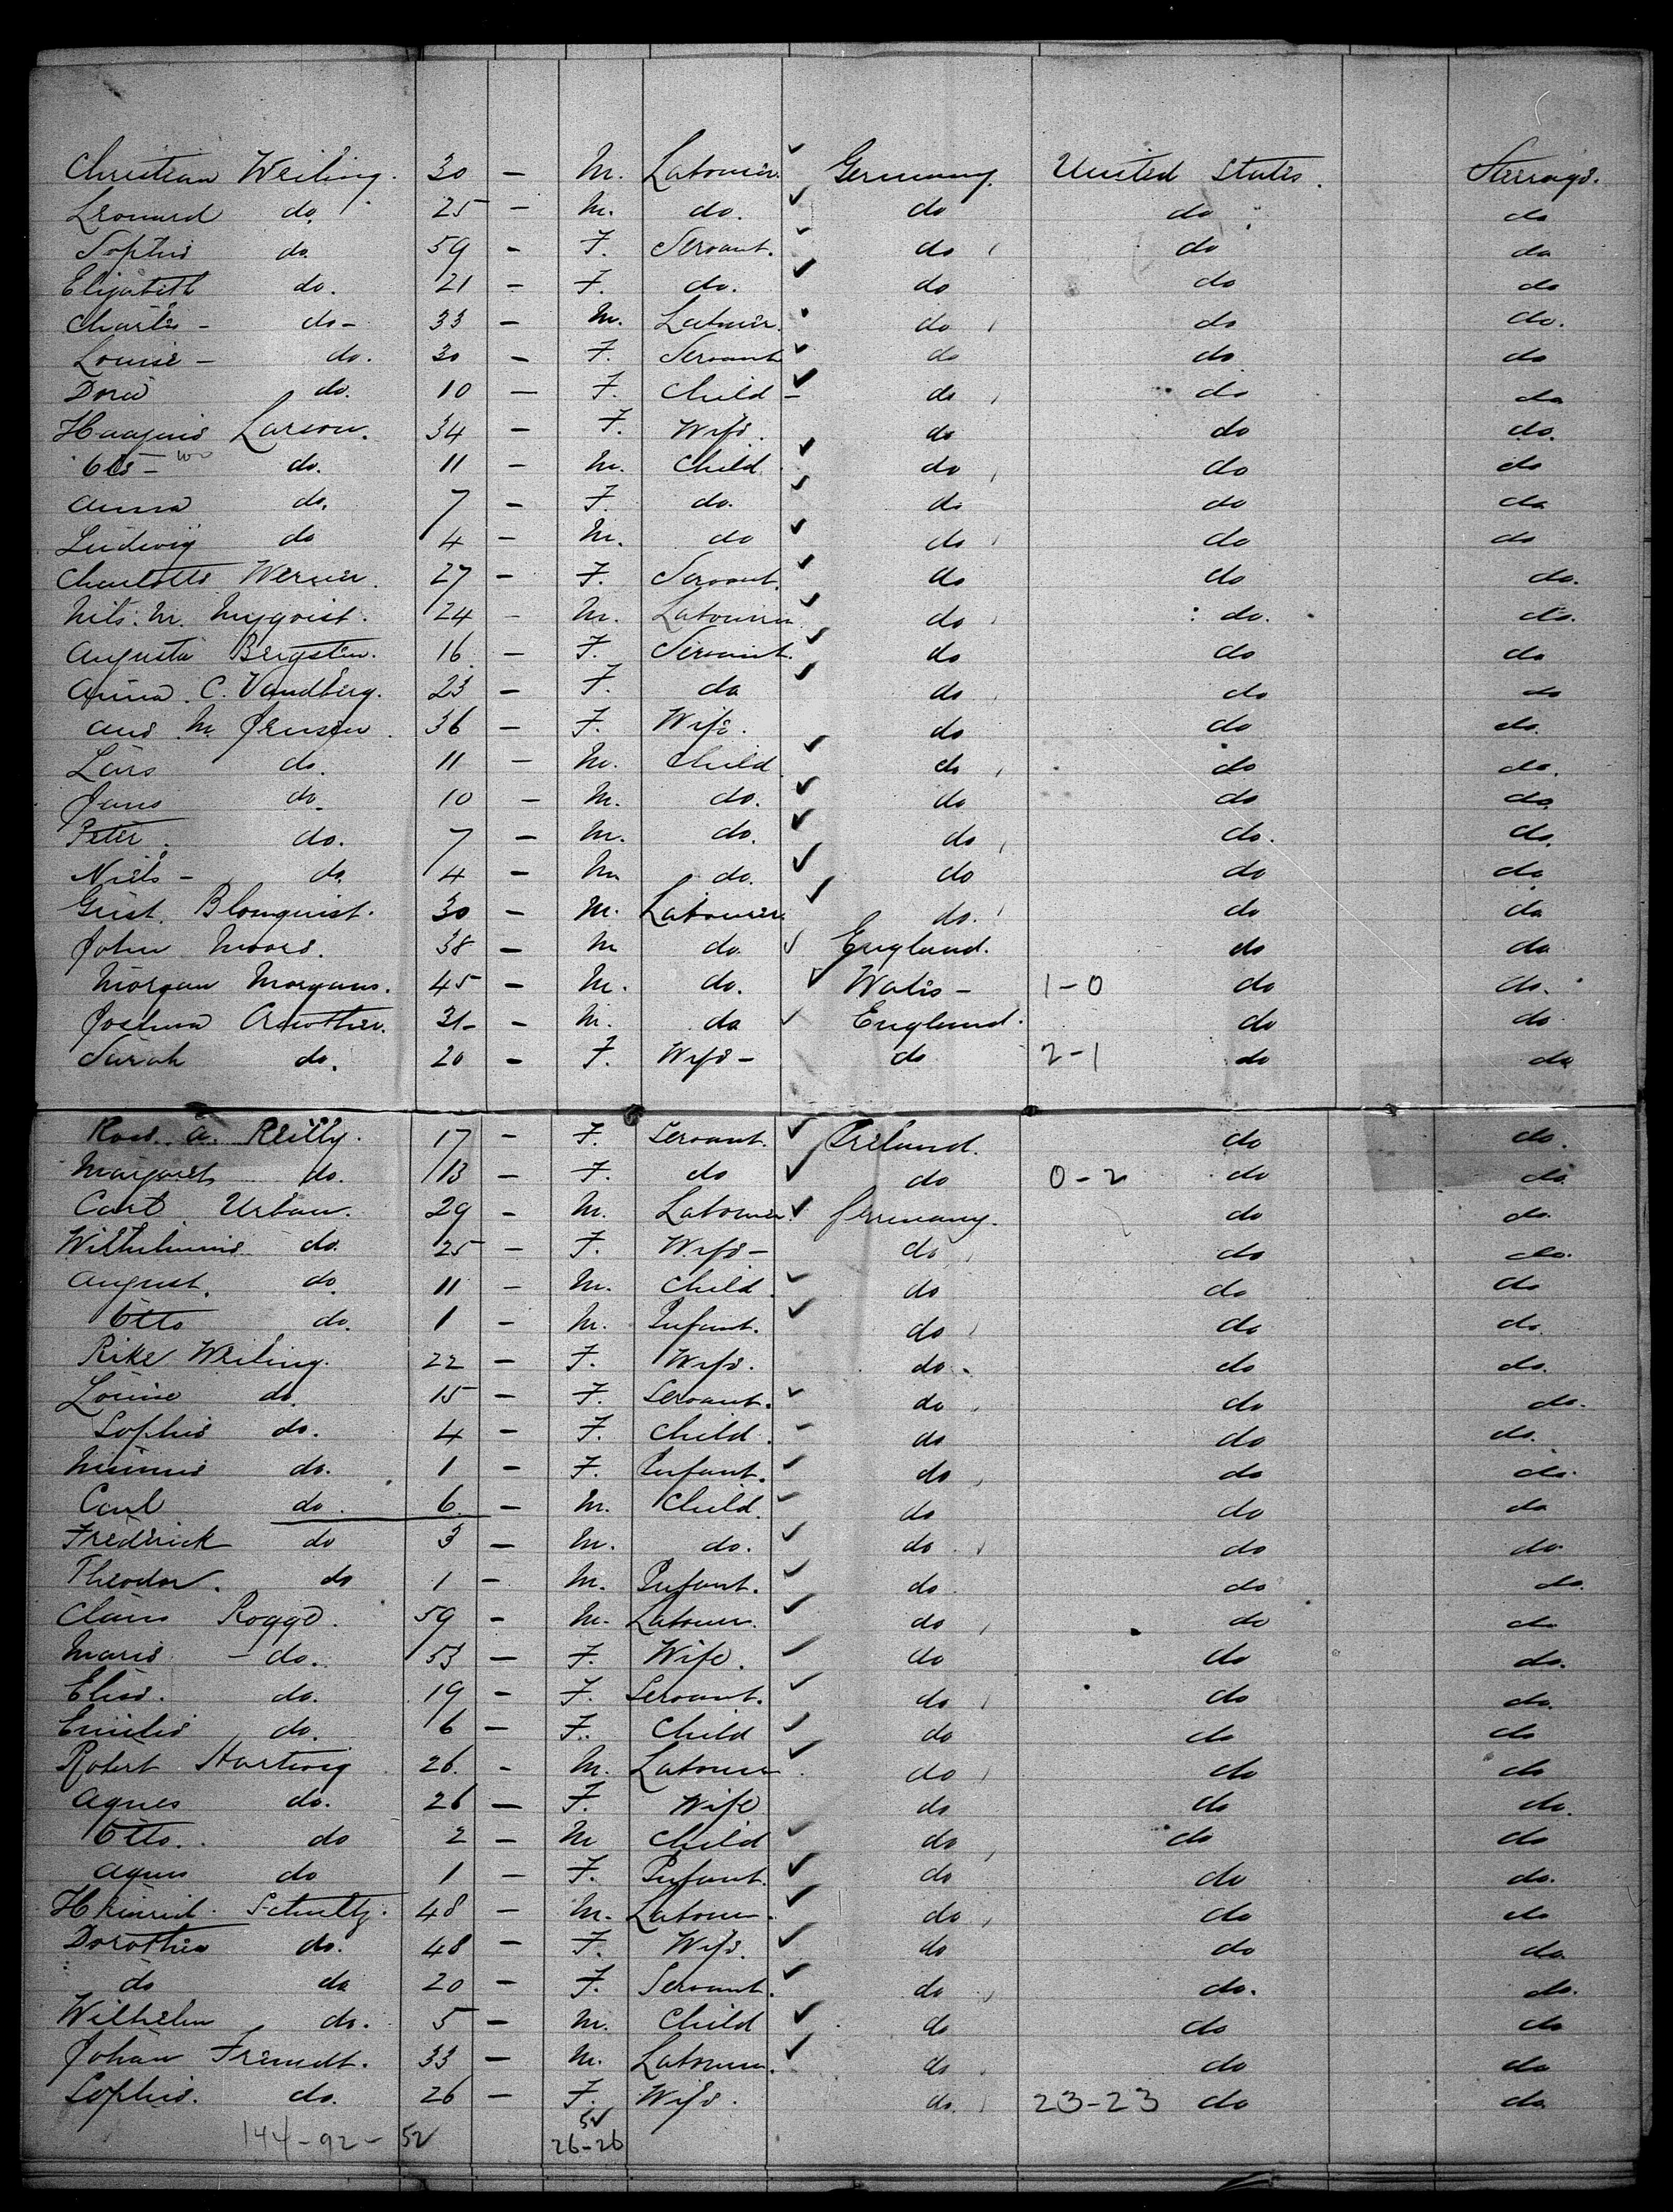 Christian Weiling. 30 - M. Labourer. Germany. United States. Steerage.
Leonard do. 25 - M. do. do do do
Sophie do. 59 - F. Servant. do do do
Elizabeth do. 21 - F. do. do do do
Charles - do- 33 - M. Labourer. do do do.
Louise - do. 30 - F. Servant do do do
Dora do. 10 - F. Child - do do do
Larson. 34 - F. Wife. do do do.
do. 11 - M. Child do do do
Anna do. 7 - F. do. do do do
Ludwig do 4 - M. do do do do
Charlotte Werner. 27 - F. Servant. do do do.
Nils. M. Myqvist. 24 - M. Labourer. do do. do.
Augusta Bergsten. 16 - F. Servant. do do do
Anna. C. Vandberg. 23 - F. do do do do
Ane M. Jensen. 36 - F. Wife. do do do.
Lars do. 11 - M. Child do do do.
Jans do. 10 - M. do. do do do.
Peter. do. 7 - M. do. do do. do.
Niels - do. 4 - M do. do do do
Gust. Blomquist. 30 - M. Labourer do. do do
John Moore. 38 - M do. England. do do
Morgan Morgans. 45 - M. do. Wales - 1-0 do do.
Joshua Crowther. 31 - M. do England. do do
Sarah do. 20 - F. Wife - do 2-1 do do
Rose. A. Reilly. 17 - F. Servant. Ireland. do do.
Margaret do. 13 - F. do do 0-2 do do
Carl Urban. 29 - M. Labourer. Germany. do do.
Wilhelmine do. 25 - F. Wife - do do do.
August. do. 11 - M. Child. do do do
Otto do. 1 - M. Infant. do do do.
Rike Weiling. 22 - F. Wife. do do do.
Louise do. 15 - F. Servant. do do do.
Sophie do. 4 - F. Child. do do do.
Minnie do. 1 - F. Infant. do do do.
Carl do. 6 - M. Child. do do do
Frederick do 3 - M. do. do do do
Theodor. do 1 - M. Infant. do do do.
Claus Rogge. 59 - M. Labourer. do do do
Marie - do. 53 - F. Wife. do do do.
Elise. do. 19 - F. Servant. do do do.
Emilie do. 6 - F. Child do do do
Robert Hartwig 26. - M. Labourer do do do
Agnes do. 26 - F. Wife do do do.
Otto. do 2 - M Child do do do
Agnes do 1 - F. Infant. do do do.
Heinrich. Schultz. 48 - M. Labourer. do do do
Dorothea do. 48 - F. Wife. do do do
do do 20 - F. Servant. do do. do.
Wilhelm do. 5 - M. Child do do do
Johan Fremdt. 33 - M. Labourer. do do do
Sophie. do. 26 - F. Wife. do. 23-23 do do
144-92-52 52
26-26